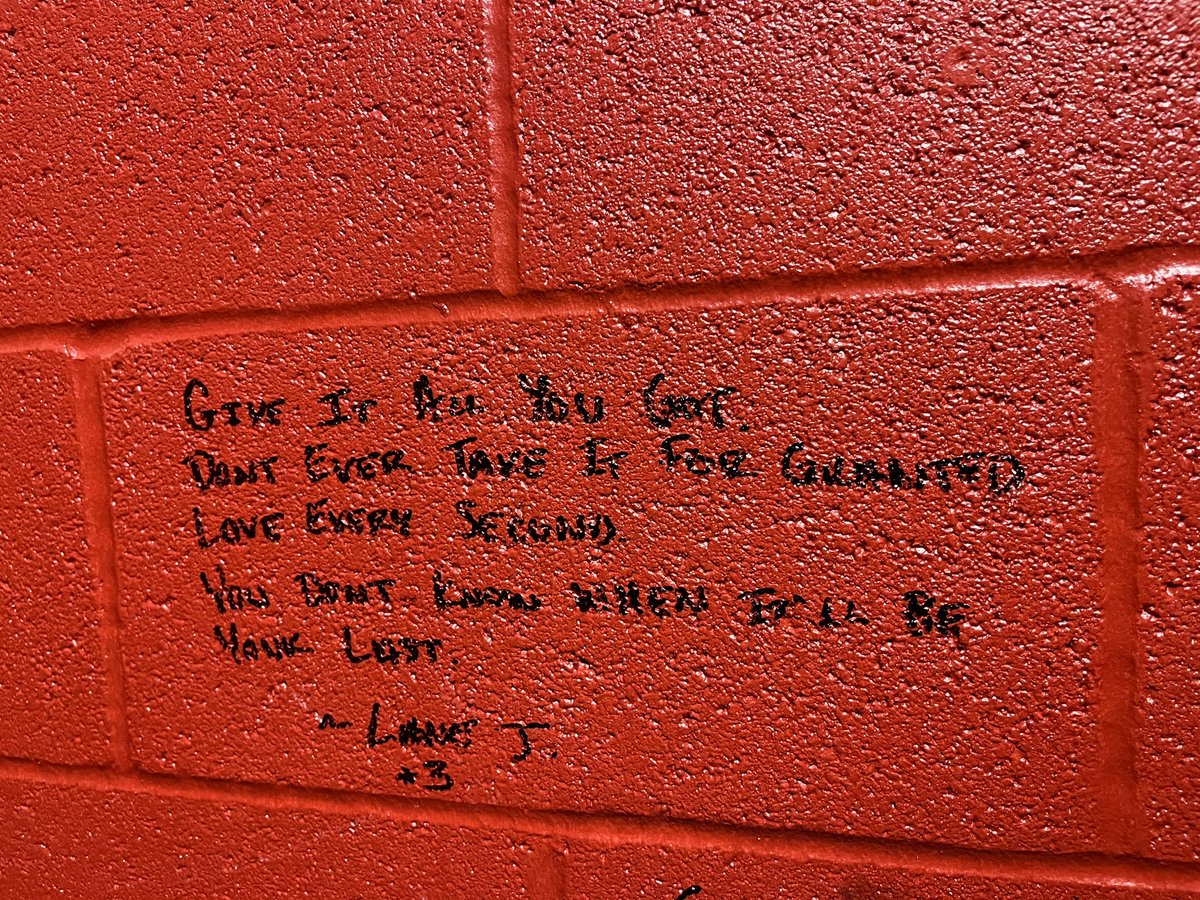 GIVE IT ALL YOU GOT.
DONT EVER TAKE IT FOR GRANTED
LOVE EVERY SECOND.
YOU DONT KNOW WHEN IT'LL BE
YOUR LAST.
~ LANE J.
#3